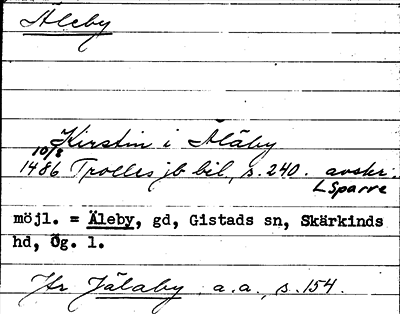 Äleby
Kirstin i Äläby
10/8
1486 Trolles jb bil, s. 240. avskr.
L Sparre
möjl. = Äleby, gd, Gistads sn, Skärkinds
hd, Ög. l.
Jfr Jälaby a.a., s. 154.